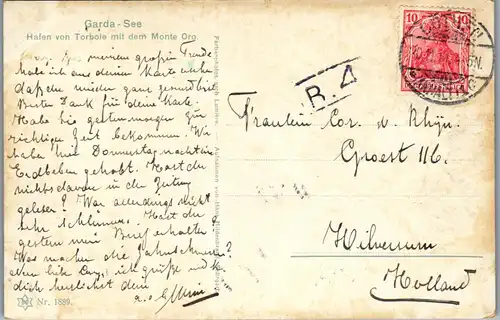 Garda-See
Hafen von Torbole mit dem Monte Oro
meinem großen Freude
habe ich aus deiner Karte
daß du wieder ganz gesund bist
Besten Dank für deine Karte.
Habe sie gestern morgen zur
richtigen Zeit bekommen. Wir
haben hier Donnerstag nacht ein
Erdbeben gehabt. Hast du
nichts davon in der Zeitung
gelesen? War allerdings nicht
sehr Schlimmes. Hast du
gestern mein Brief erhalten?
Was machen die Zahnschmerzen?
ich grüße und k.
dich herzlichst dein
Nr. 1889.
R. 4
10 10
Fräulein Cor. de Rhijn.
Groest 116.
Hilversum
Holland